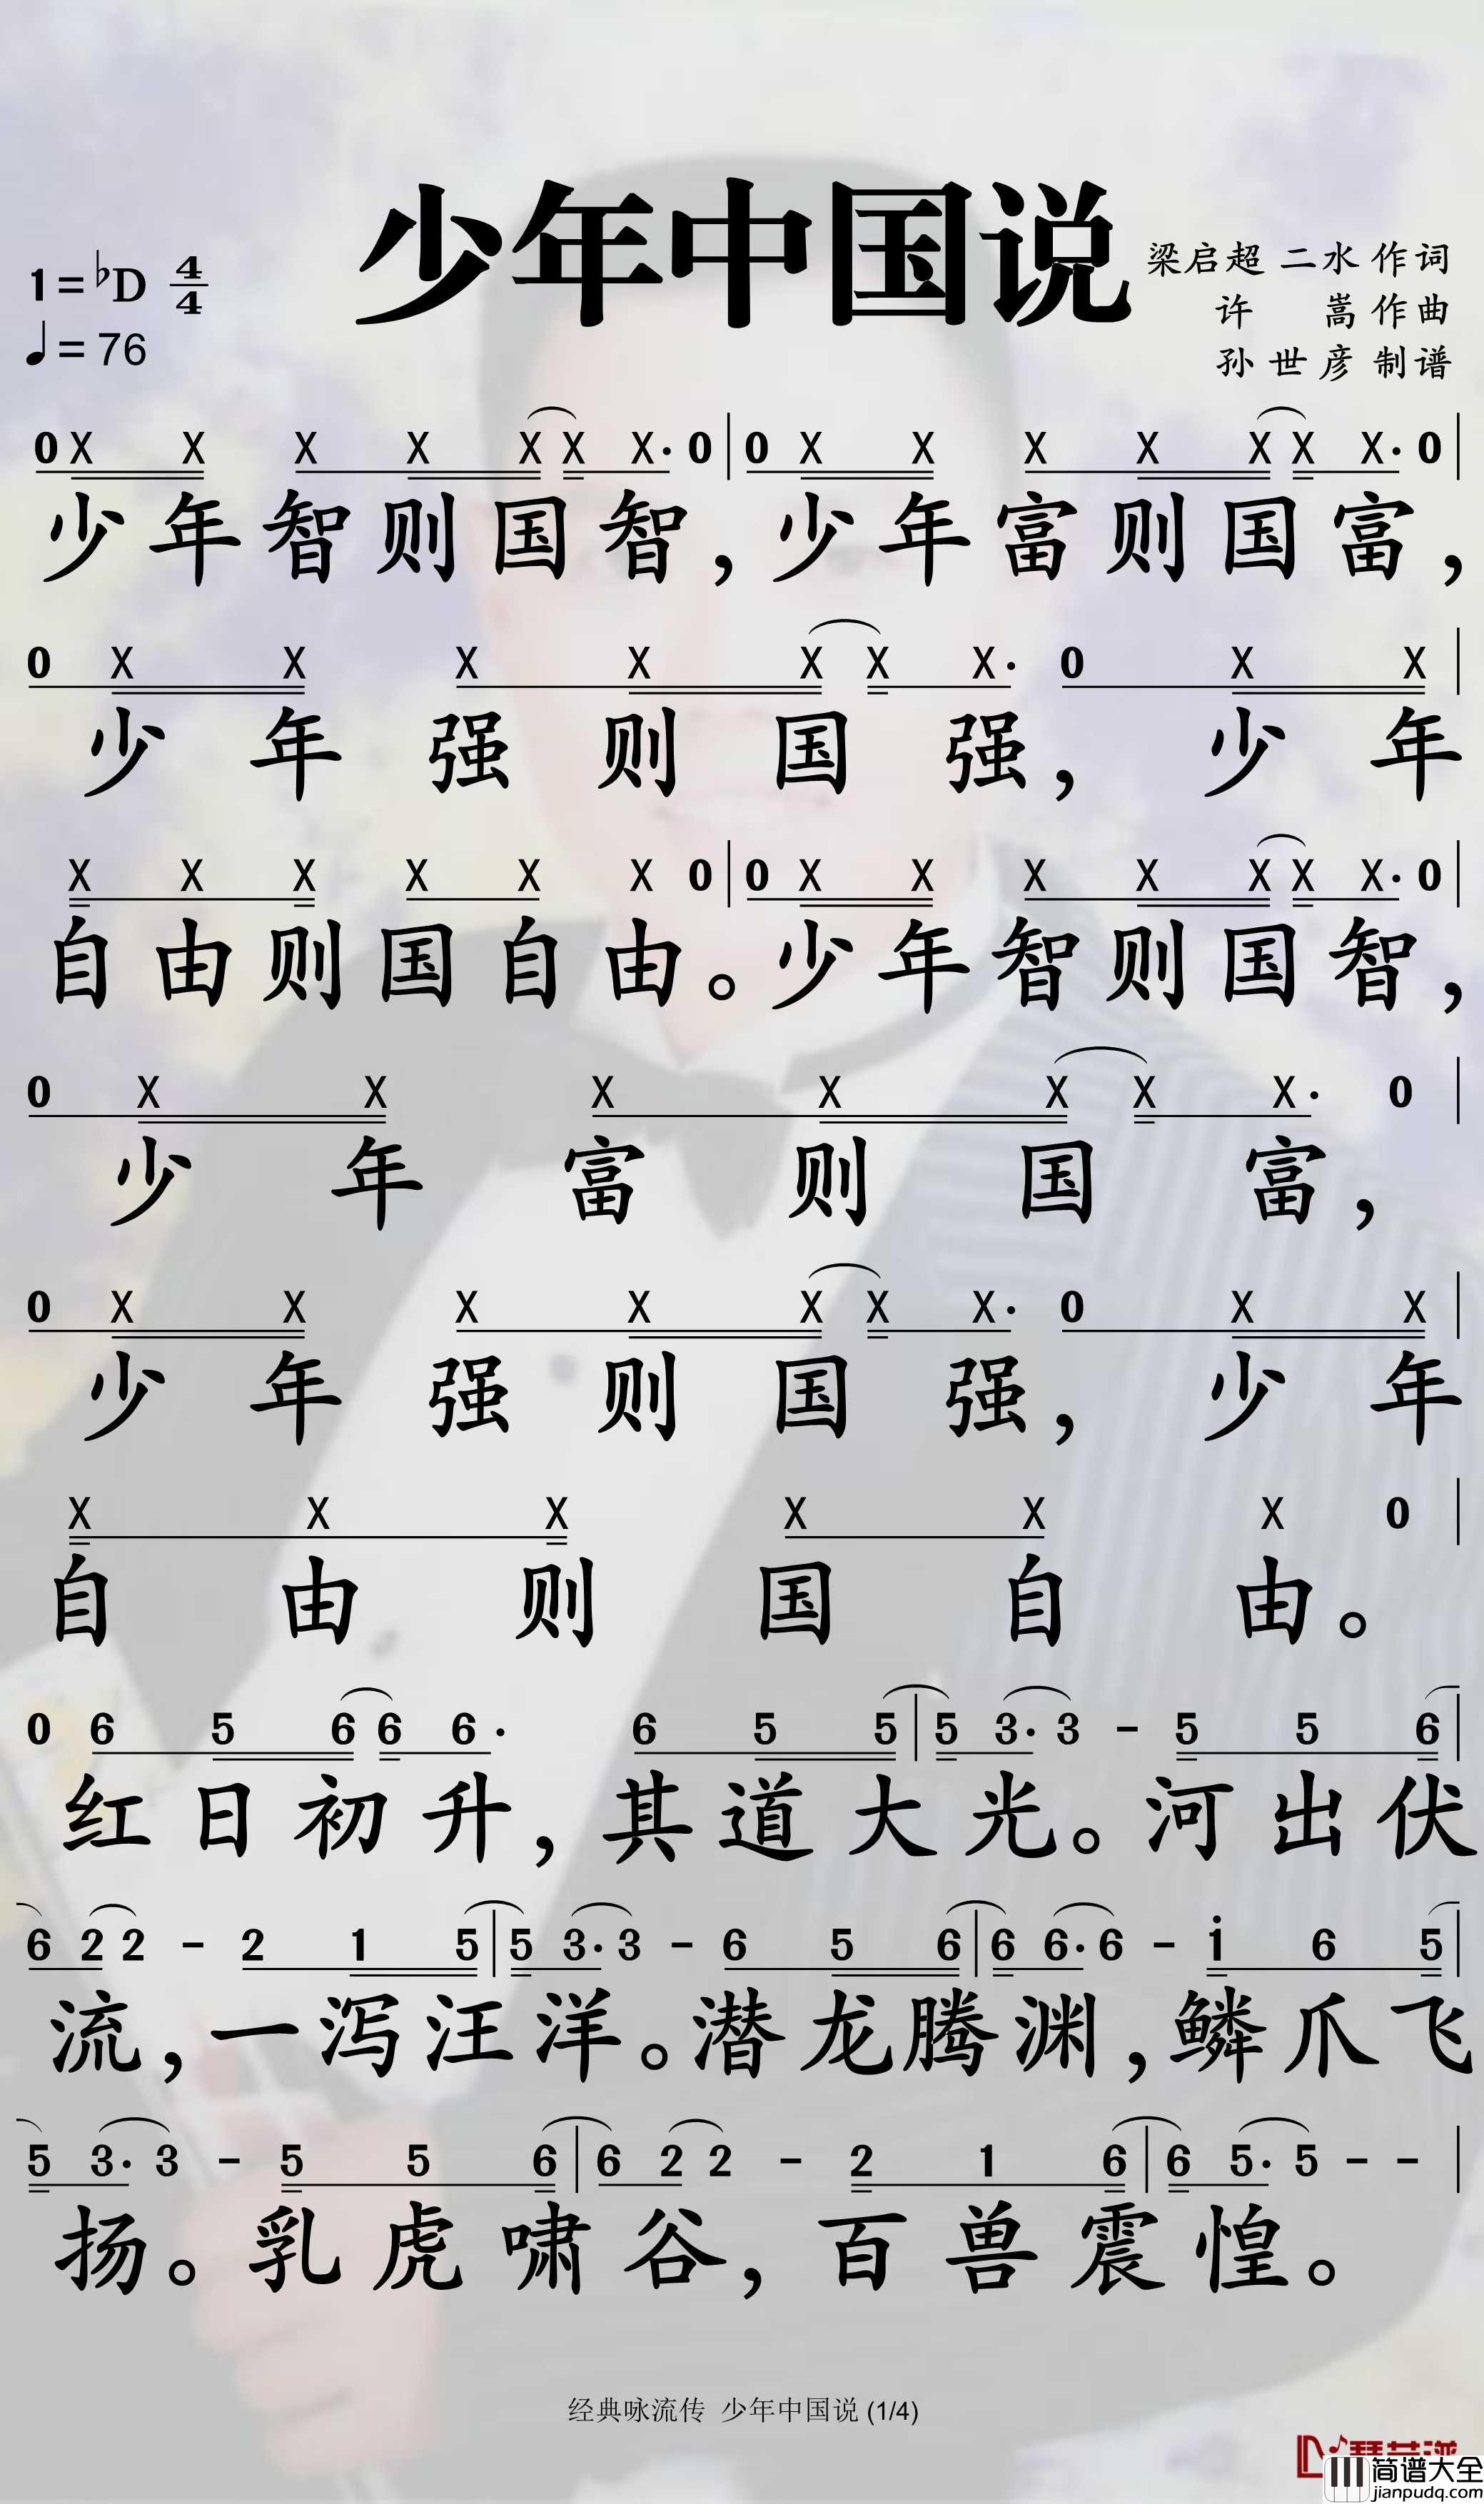 少年中国说
1=♭D 4/4
♩=76
梁启超 二水 作词
许 嵩 作曲
孙世彦 制谱
0 X X X X X X X· 0 | 0 X X X X X X X· 0 |
少年智则国智，少年富则国富，
0 X X X X X X X· 0 X X |
少年强则国强，少年
X X X X X X 0 | 0 X X X X X X X· 0 |
自由则国自由。少年智则国智，
0 X X X X X X X· 0 |
少年富则国富，
0 X X X X X X X· 0 X X |
少年强则国强，少年
X X X X X X 0 |
自由则国自由。
0 6 5 6 6 6· 6 5 5 | 5 3· 3 - 5 5 6 |
红日初升，其道大光。河出伏
6 2 2 - 2 1 5 | 5 3· 3 - 6 5 6 | 6 6· 6 - i 6 5 |
流，一泻汪洋。潜龙腾渊，鳞爪飞
5 3· 3 - 5 5 6 | 6 2 2 - 2 1 6 | 6 5· 5 - - |
扬。乳虎啸谷，百兽震惶。
经典咏流传 少年中国说 (1/4)
简谱大全
jianpudq.com